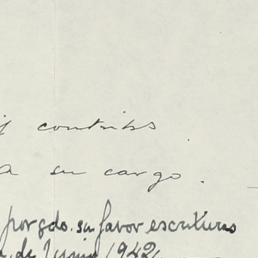 contribs
a su cargo.
por gdo. su favor escrituras
de Junio 1942